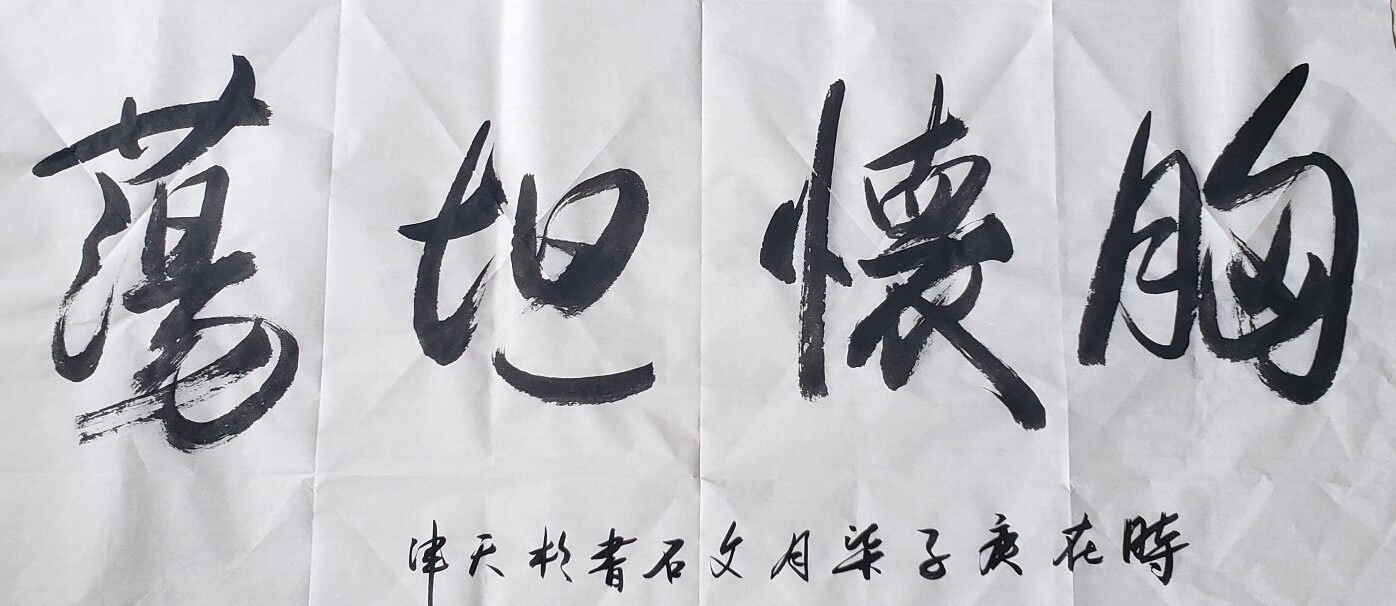 胸懷坦蕩
時在庚子柒月文石書於天津